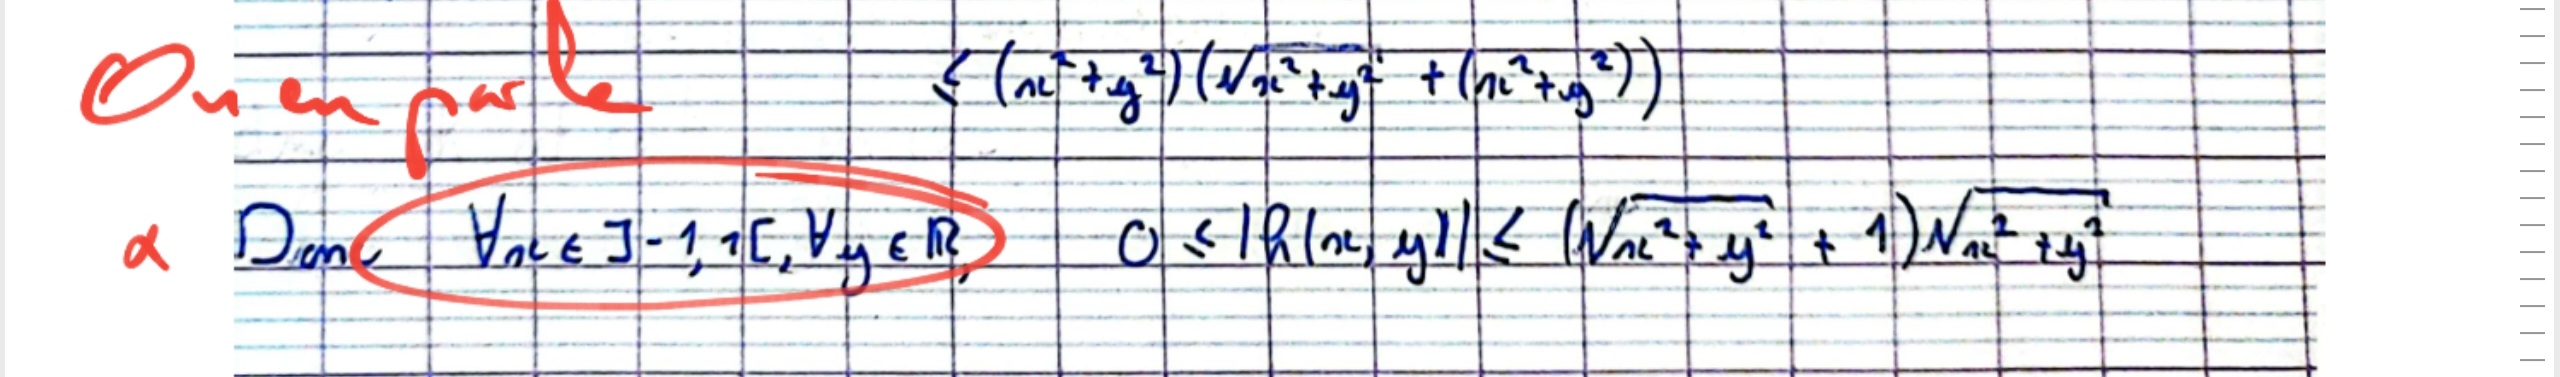 On en parle
≤ (x²+y²)(√x²+y² + (x²+y²))
α Donc ∀x∈]-1,1[, ∀y∈ℝ, 0 ≤ |h(x,y)| ≤ (√x²+y² + 1)√x²+y²